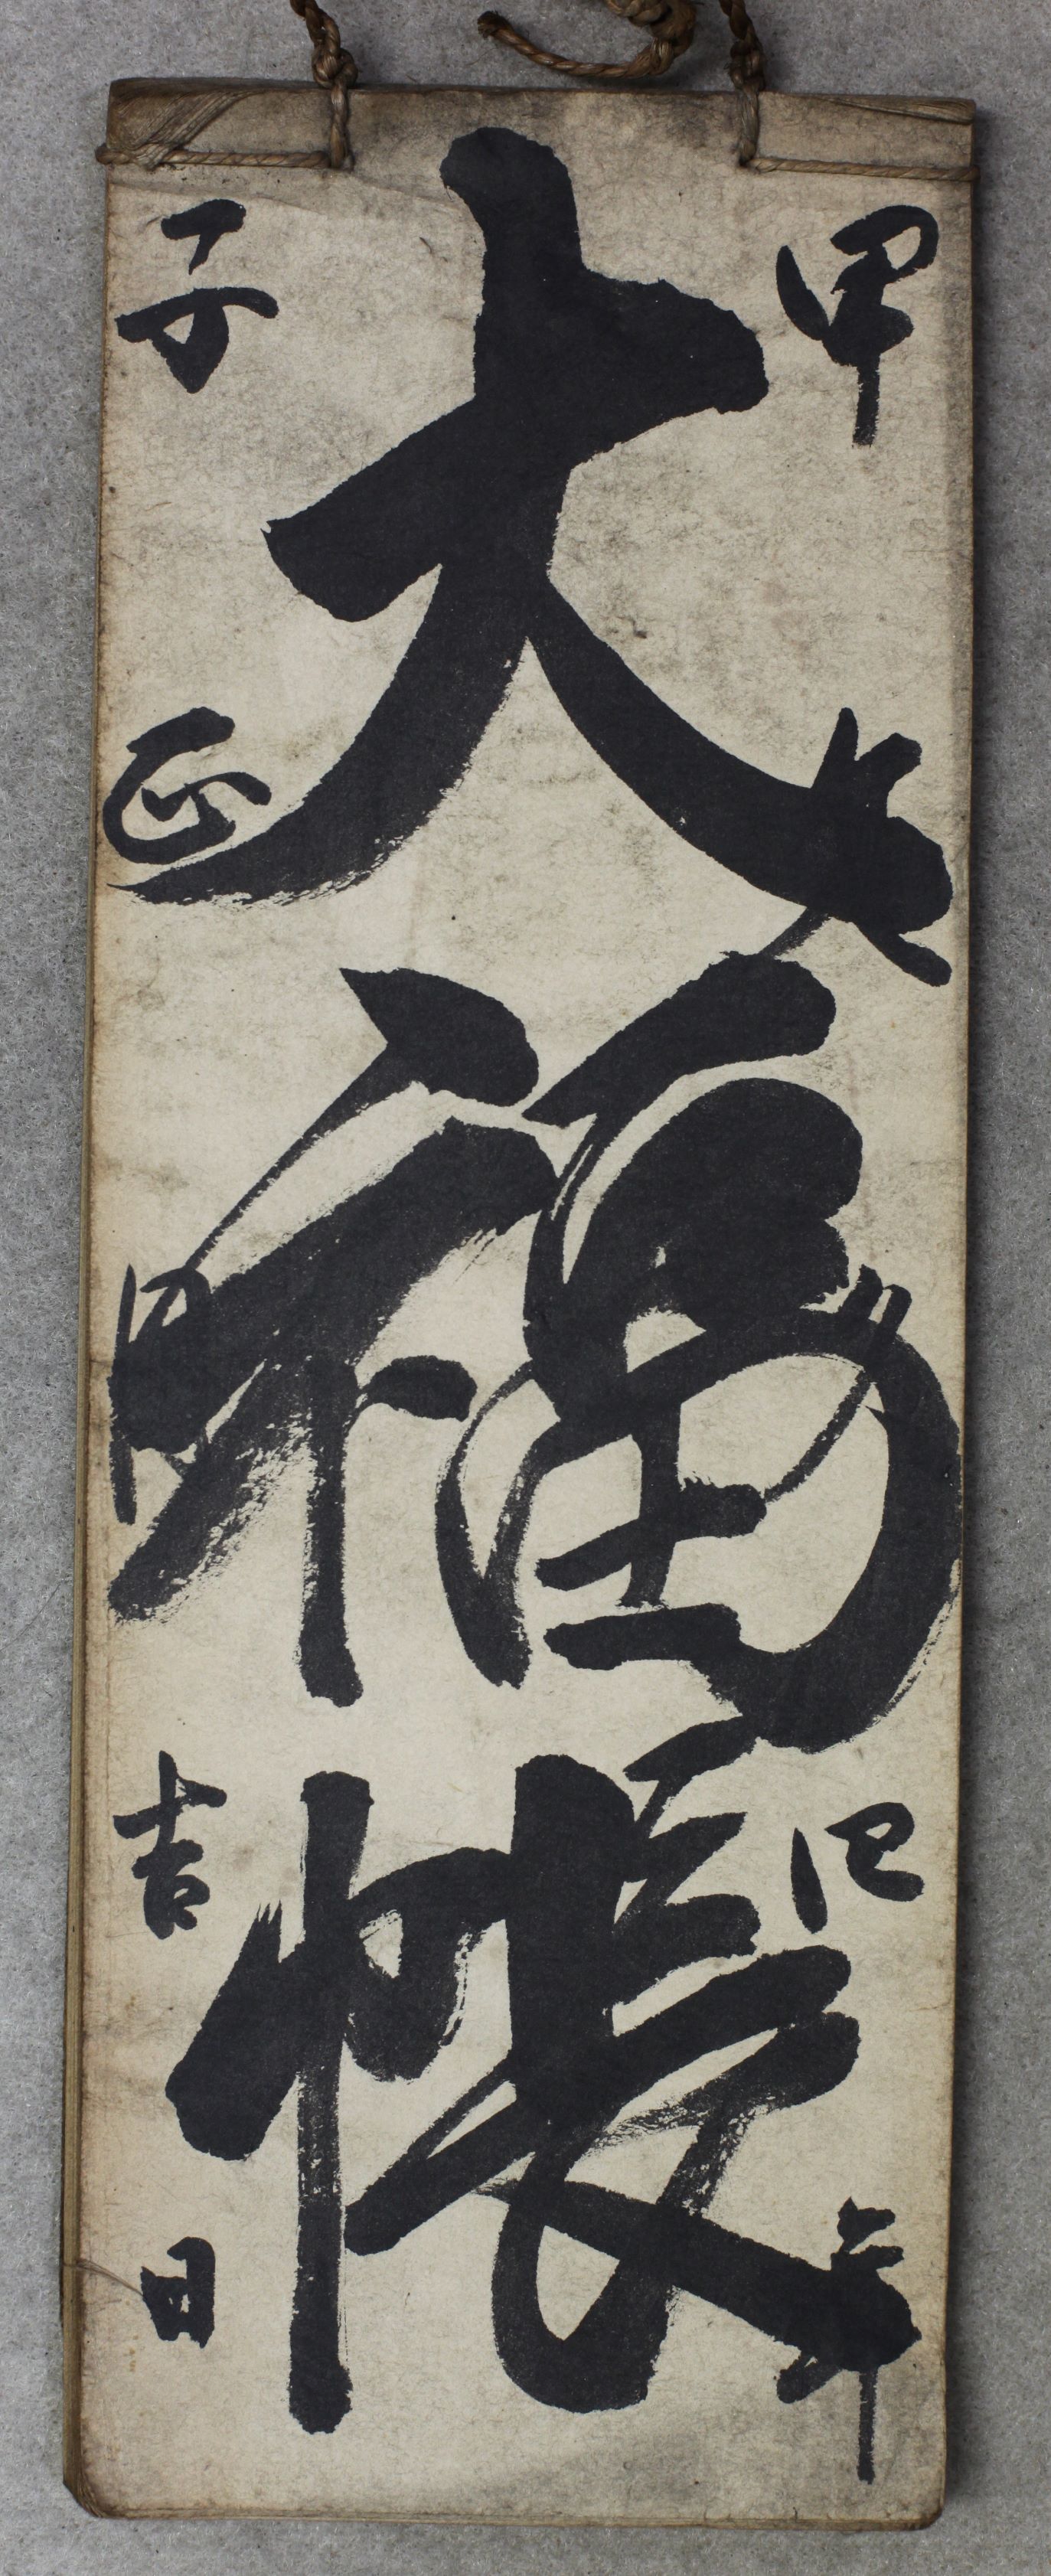 甲 巳年
大福帳
子正月吉日